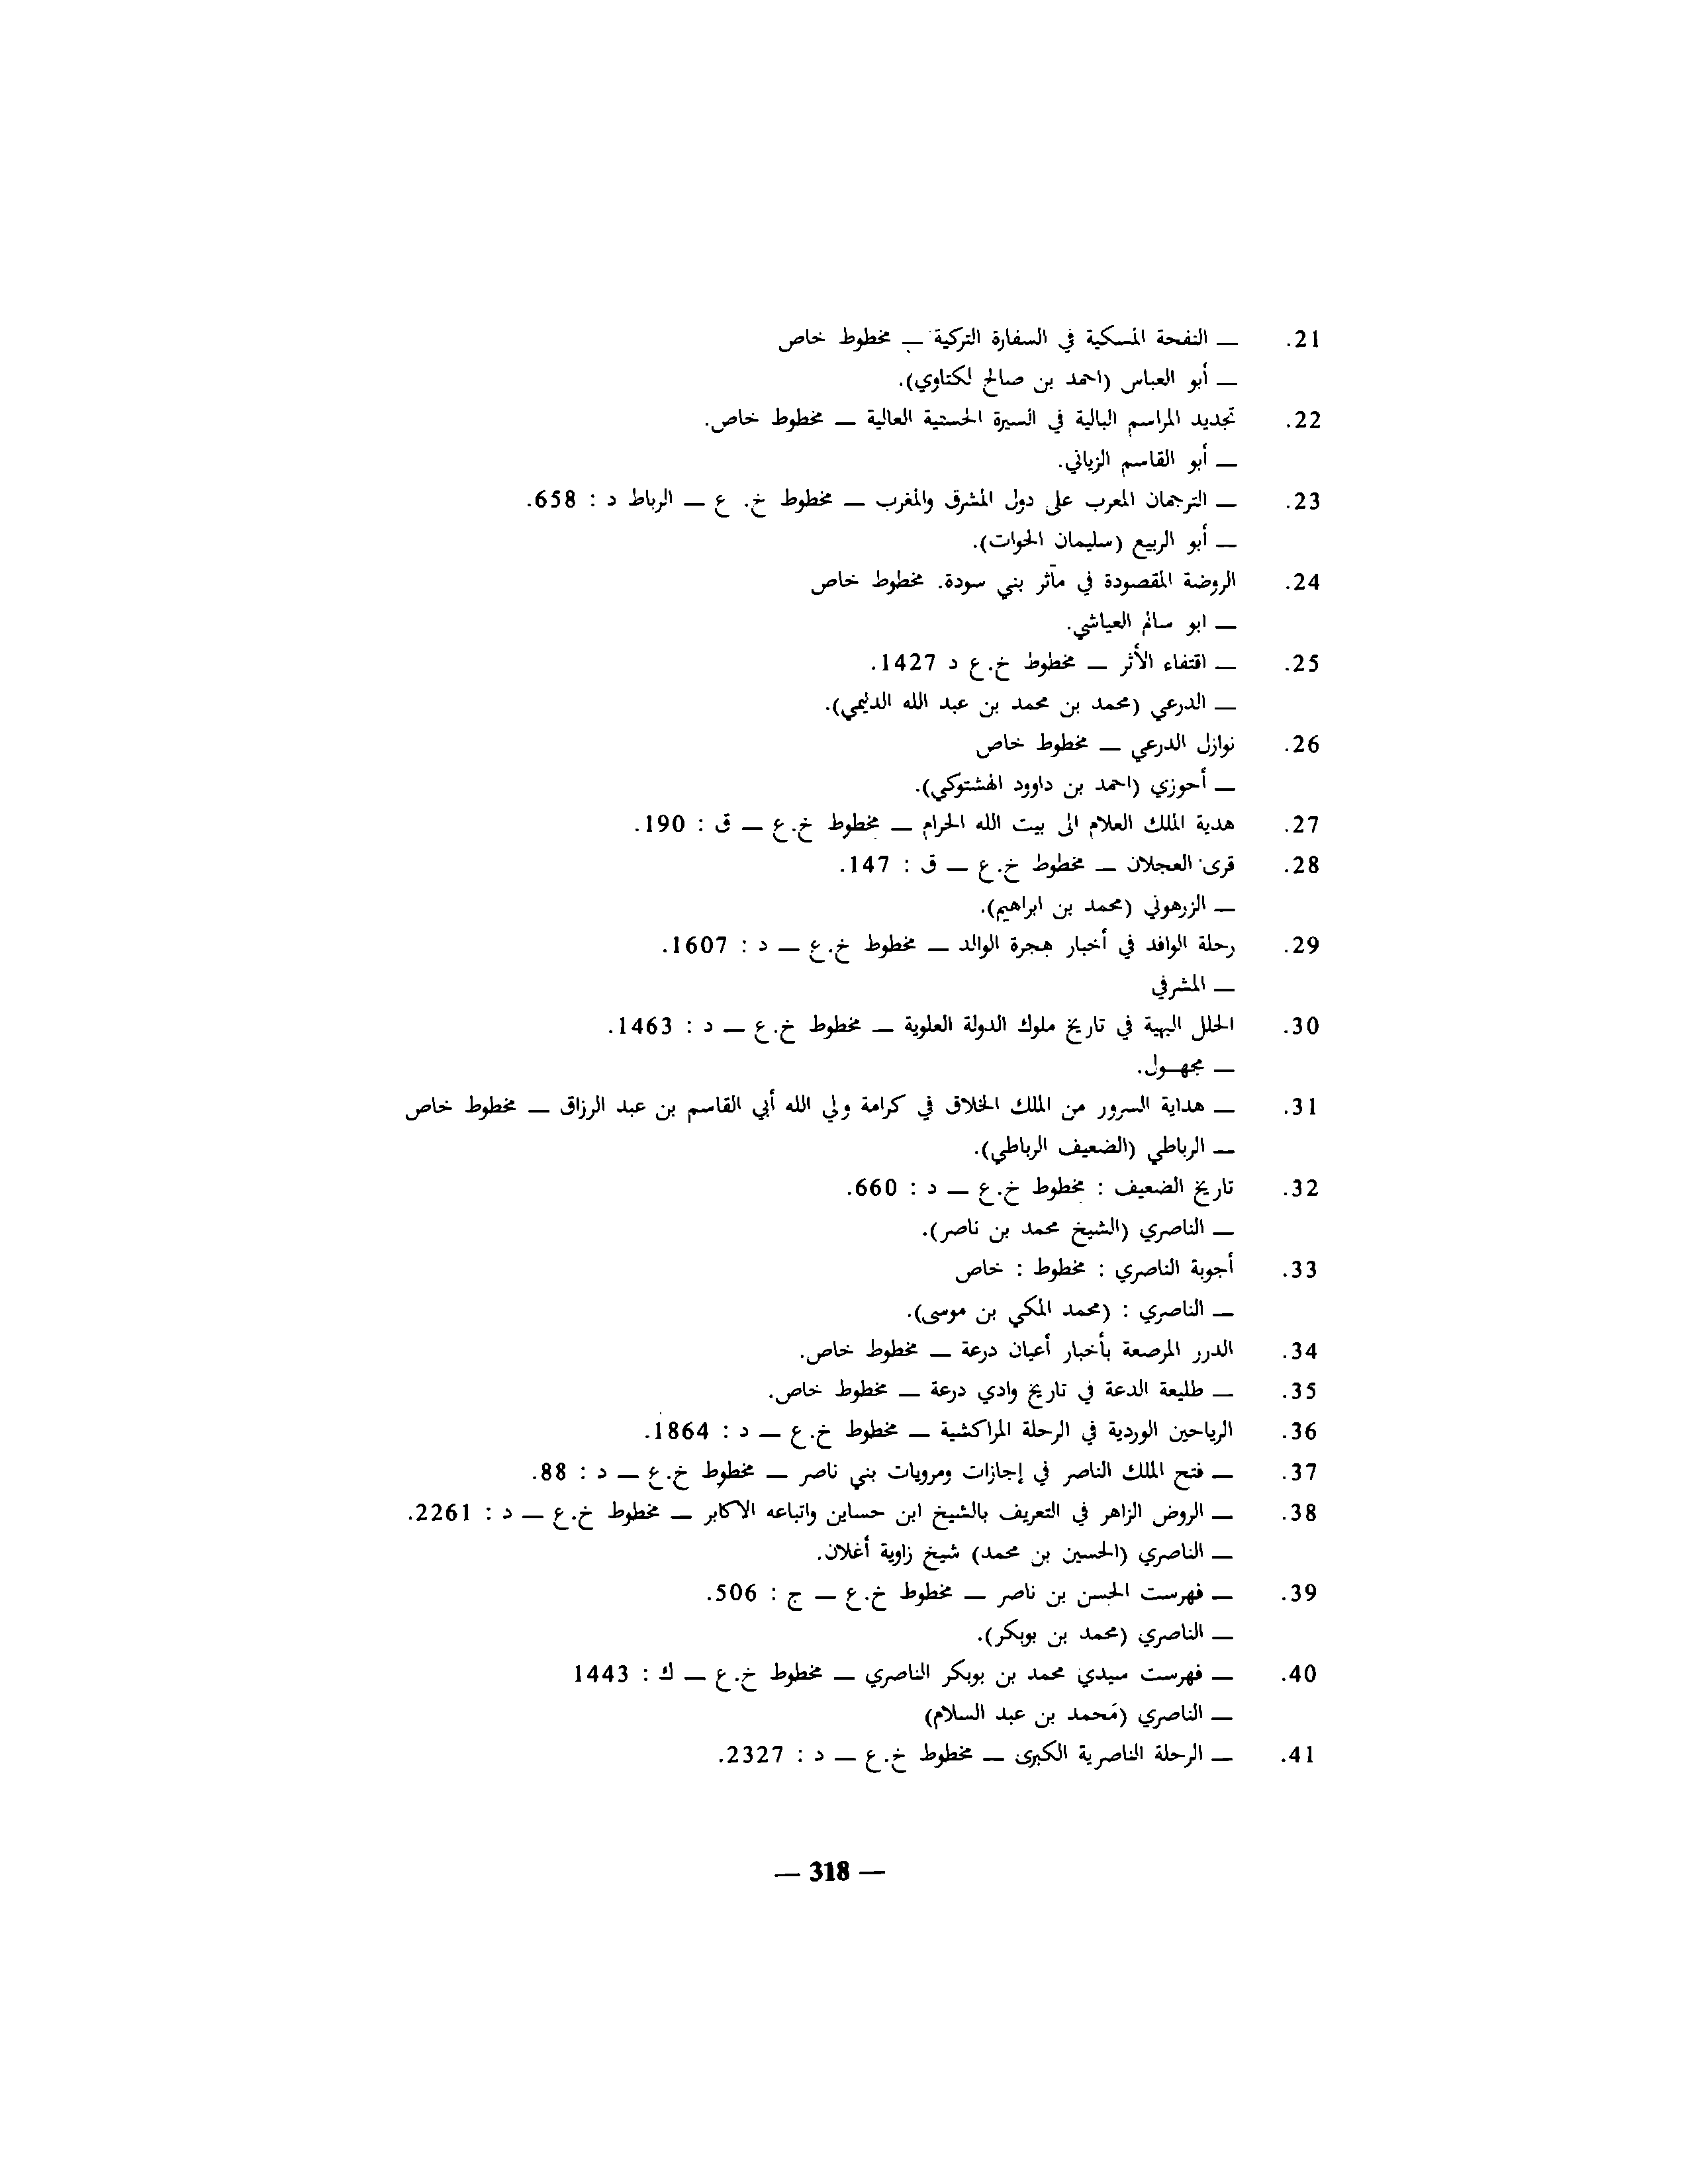 21. — النفحة المسكية في السفارة التركية — مخطوط خاص
— أبو العباس (احمد بن صالح لكتاوي).
22. تجديد المراسم البالية في السيرة الحسنية العالية — مخطوط خاص.
— أبو القاسم الزياني.
23. — الترجمان المعرب على دول المشرق والمغرب — مخطوط خ. ع — الرباط د : 658.
— أبو الربيع (سليمان الحوات).
24. الروضة المقصودة في مآثر بني سودة. مخطوط خاص
— ابو سالم العياشي.
25. — اقتفاء الأثر — مخطوط خ.ع د 1427.
— الدرعي (محمد بن محمد بن عبد الله الدليمي).
26. نوازل الدرعي — مخطوط خاص
— أحوزي (احمد بن داوود الهشتوكي).
27. هدية الملك العلام الى بيت الله الحرام — مخطوط خ.ع — ق : 190.
28. قرى العجلان — مخطوط خ.ع — ق : 147.
— الزرهوني (محمد بن ابراهيم).
29. رحلة الوافد في أخبار هجرة الوالد — مخطوط خ.ع — د : 1607.
— المشرفي
30. الحلل البهية في تاريخ ملوك الدولة العلوية — مخطوط خ.ع — د : 1463.
— مجهـول.
31. — هداية السرور من الملك الخلاق في كرامة ولي الله أبي القاسم بن عبد الرزاق — مخطوط خاص
— الرباطي (الضعيف الرباطي).
32. تاريخ الضعيف : مخطوط خ.ع — د : 660.
— الناصري (الشيخ محمد بن ناصر).
33. أجوبة الناصري : مخطوط : خاص
— الناصري : (محمد المكي بن موسى).
34. الدرر المرصعة بأخبار أعيان درعة — مخطوط خاص.
35. — طليعة الدعة في تاريخ وادي درعة — مخطوط خاص.
36. الرياحين الوردية في الرحلة المراكشية — مخطوط خ.ع — د : 1864.
37. — فتح الملك الناصر في إجازات ومرويات بني ناصر — مخطوط خ.ع — د : 88.
38. — الروض الزاهر في التعريف بالشيخ ابن حساين واتباعه الاكابر — مخطوط خ.ع — د : 2261.
— الناصري (الحسين بن محمد) شيخ زاوية أغلان.
39. — فهرست الحسن بن ناصر — مخطوط خ.ع — ج : 506.
— الناصري (محمد بن بوبكر).
40. — فهرست سيدي محمد بن بوبكر الناصري — مخطوط خ.ع — ك : 1443
— الناصري (مَحمد بن عبد السلام)
41. — الرحلة الناصرية الكبرى — مخطوط خ.ع — د : 2327.
— 318 —